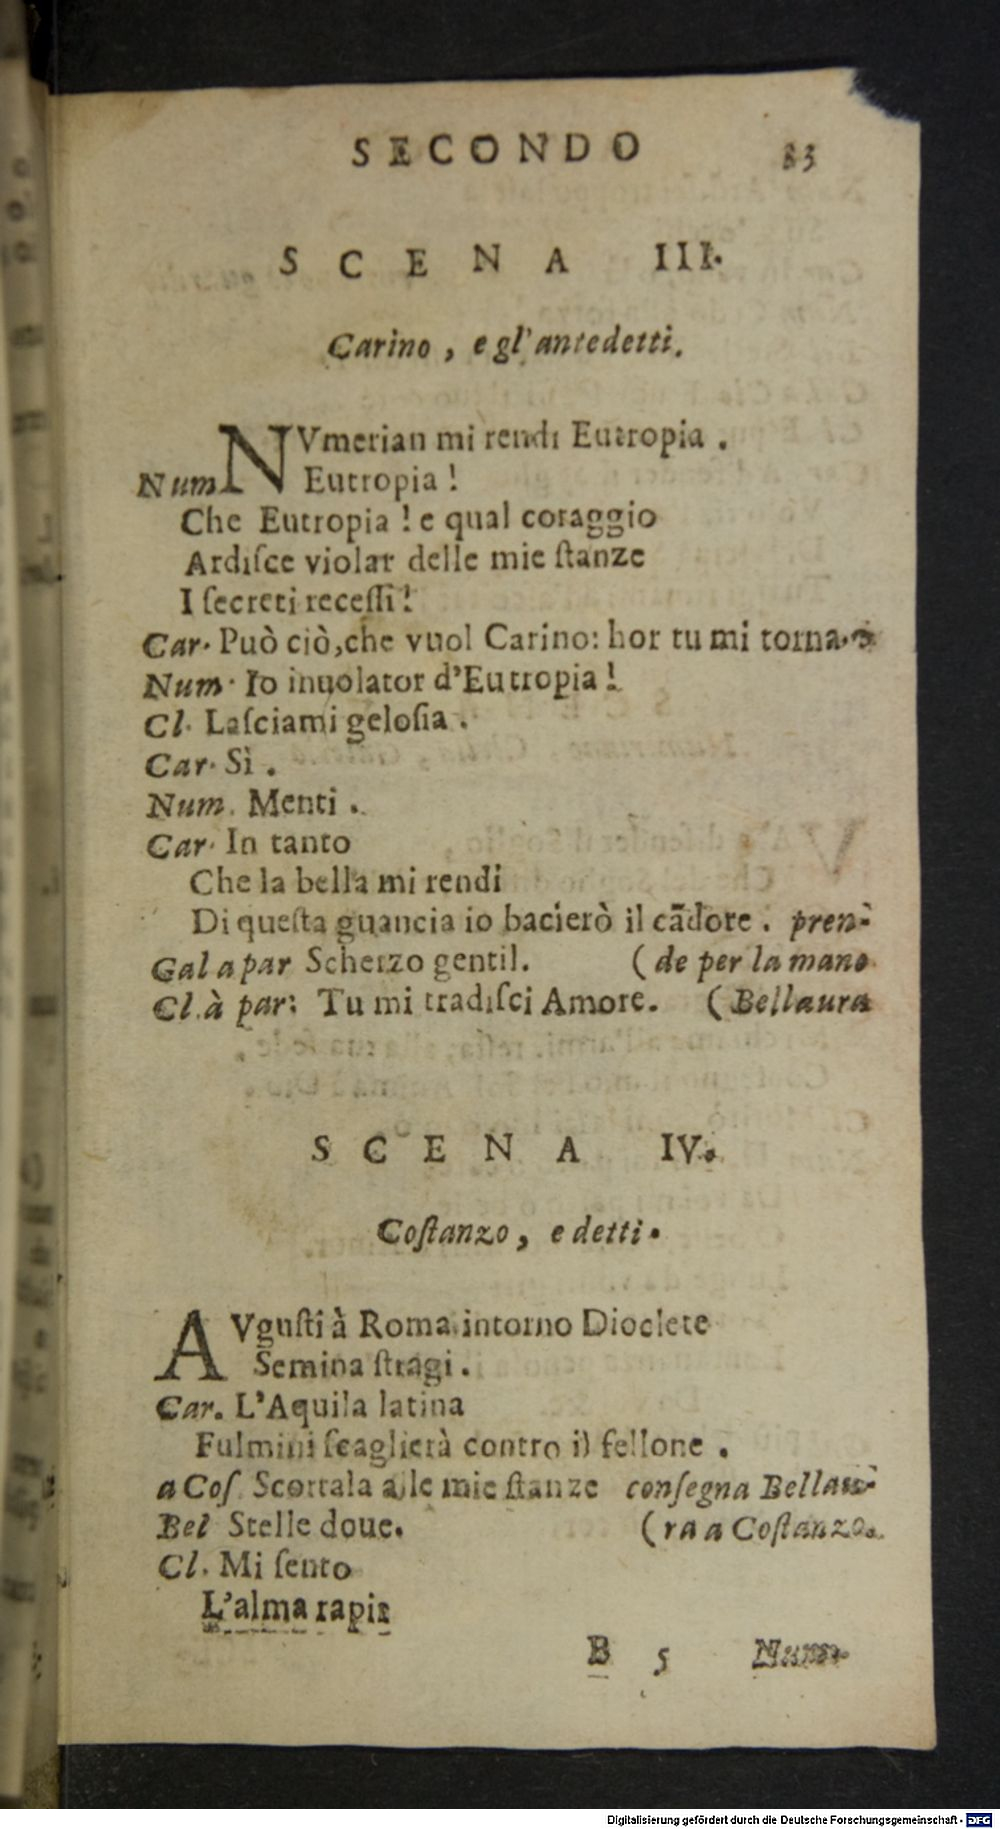 SECONDO 33
SCENA III.
Carino, e gl'antedetti.
NVmerian mi rendi Eutropia.
Num Eutropia!
Che Eutropia! e qual coraggio
Ardiſce violar delle mie ſtanze
I ſecreti receſſi!
Car. Può ciò, che vuol Carino: hor tu mi torna.
Num. Io inuolator d'Eutropia!
Cl. Laſciami geloſia.
Car. Sì.
Num. Menti.
Car. In tanto
Che la bella mi rendi
Di queſta guancia io bacierò il cādore. pren-
Gal a par Scherzo gentil. (de per la mano
Cl. à par: Tu mi tradiſci Amore. (Bellaura
SCENA IV.
Coſtanzo, e detti.
AVguſti à Roma intorno Dioclete
Semina ſtragi.
Car. L'Aquila latina
Fulmini ſcaglierà contro il fellone.
a Coſ. Scortala a le mie ſtanze conſegna Bellau-
Bel Stelle doue. (ra a Coſtanzo.
Cl. Mi ſento
L'alma rapir
B 5 Num.
Digitalisierung gefördert durch die Deutsche Forschungsgemeinschaft - DFG